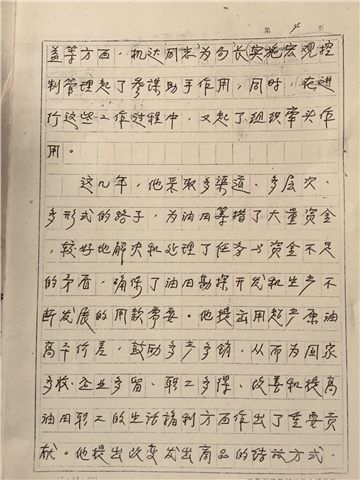 第 页
益等方面,机达同志为局长实施宏观控
制管理起了参谋助手作用,同时,在进
行这些工作过程中,又起了组织带头作
用。
这几年,他采取多渠道、多层次、
多形式的路子,为油田筹措了大量资金
,较好地解决和处理了任务与资金不足
的矛盾,确保了油田勘探开发和生产不
断发展的用款需要。他提出用超产原油
高平价差,鼓励多产多销,从而为国家
多收、企业多留、职工多得、改善和提高
油田职工的生活福利方面作出了重要贡
献。他提出改变发出商品的结算方式,